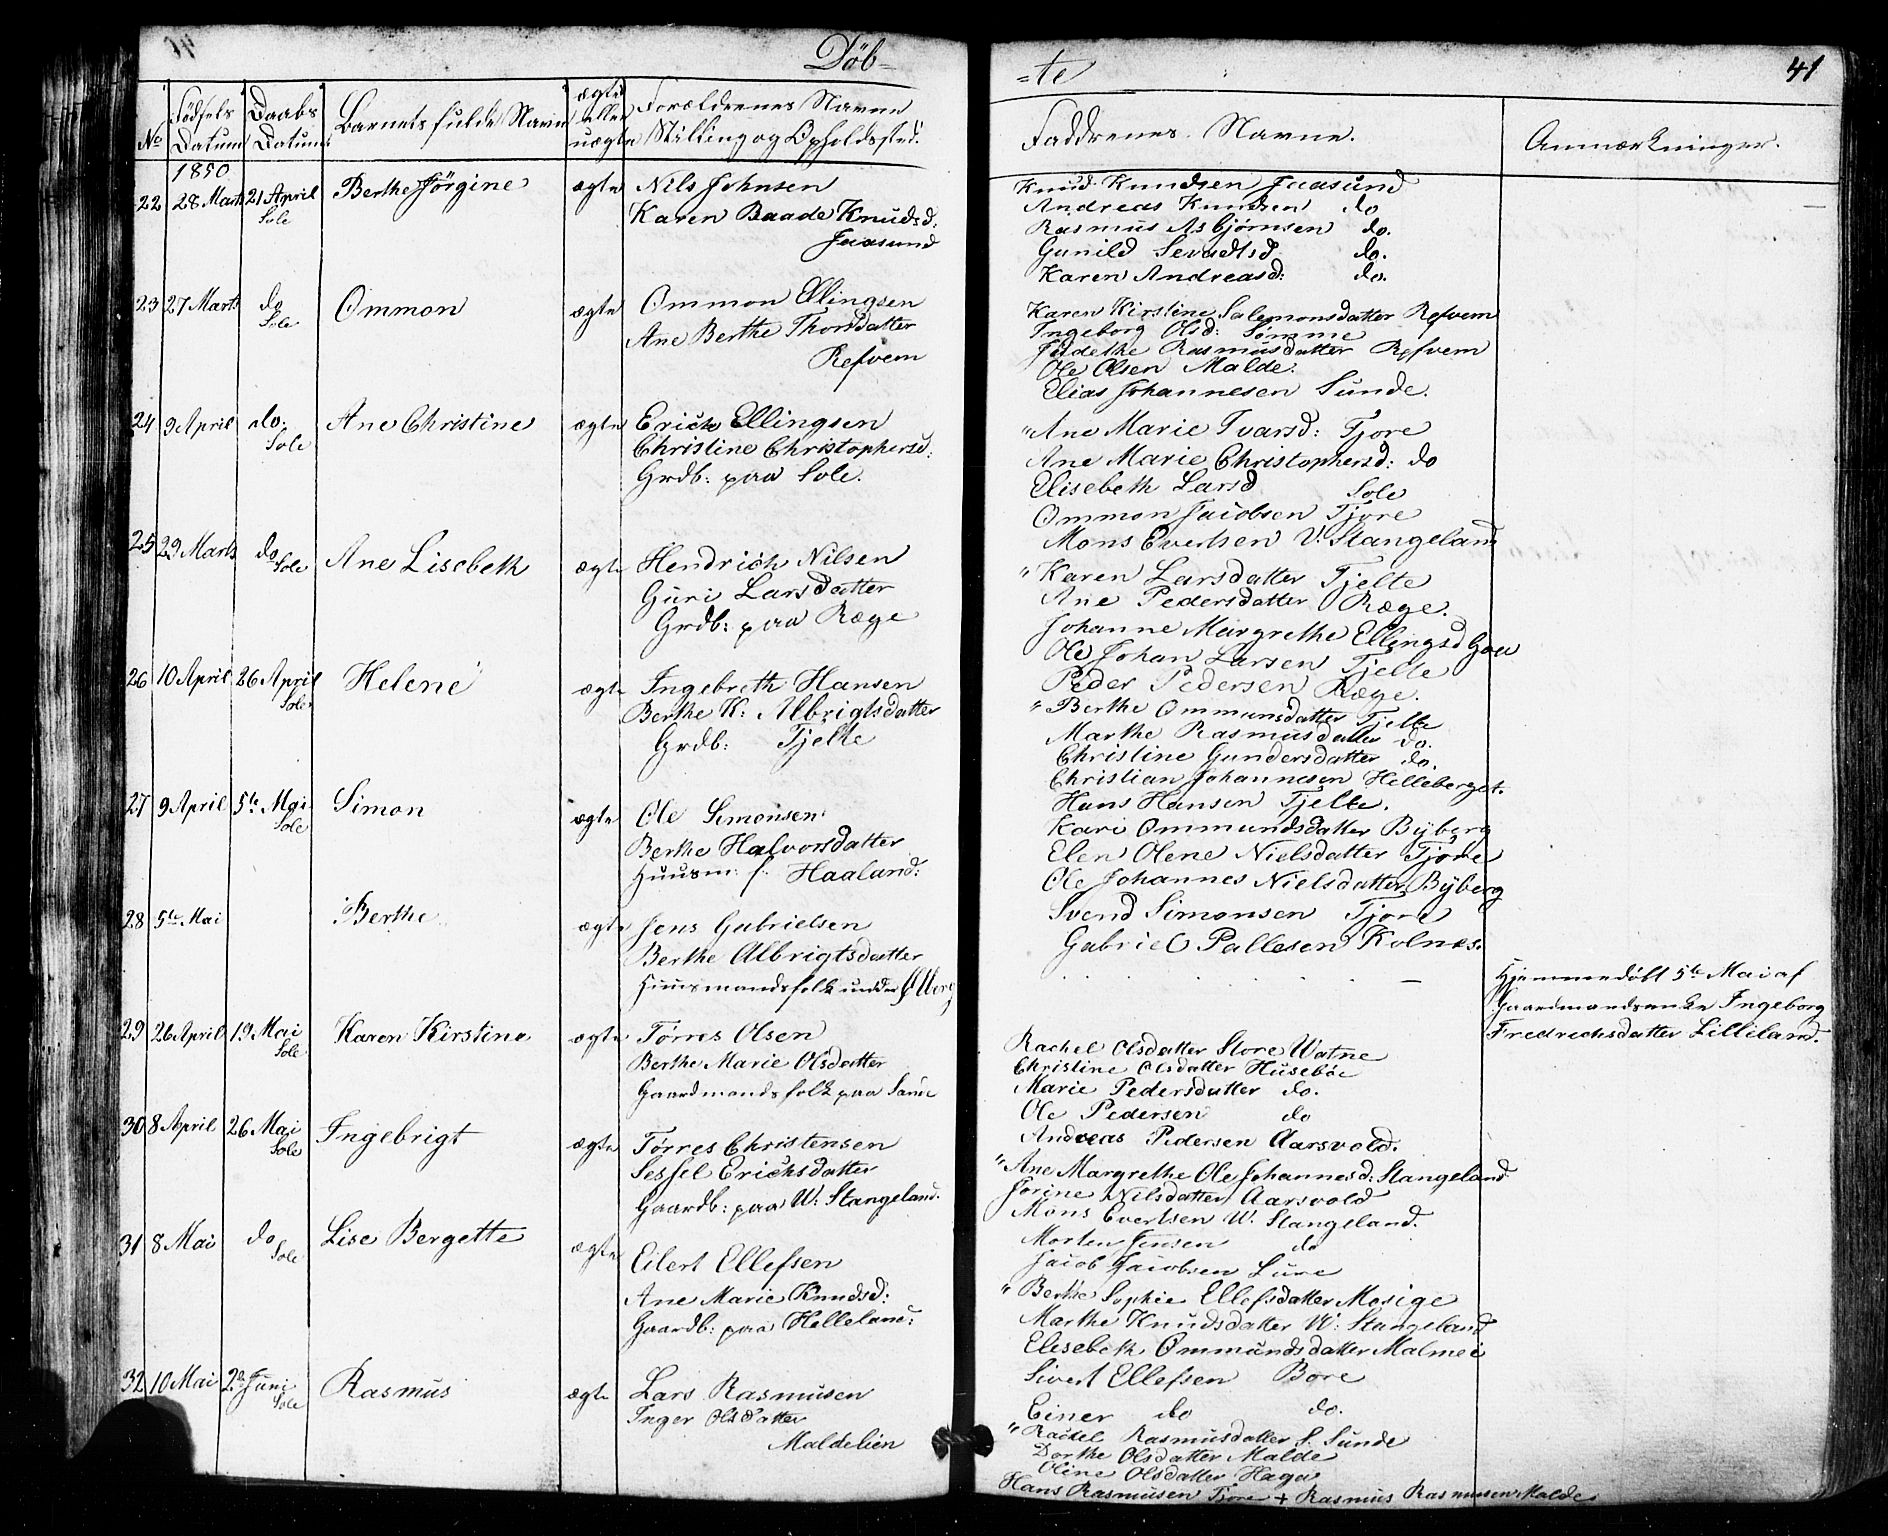 Døb-
Fødsels Daabs Barnets fulde Navn ægte eller uægte Forældrenes Navne
No Datum Datum Stilling og Opholdssted.
1850
22 28 Marts 21 April Berthe Jørgine ægte Nils Johnsen
Sole Karen Baade Knudsd:
Jaasund
23 27 Marts do Ommon ægte Ommon Ellingsen
Sole Ane Berthe Thorsdatter
Refvem
24 9 April do. Ane Christine ægte Erich Ellingsen
Sole Christine Christophersd:
Grdb: paa Sole.
25 29 Marts do Ane Lisebeth ægte Hendrich Nilsen
Sole Guri Larsdatter
Grdb: paa Ræge
26 10 April 26 April Helene ægte Ingebreth Hansen
Sole Berthe K: Albrigtsdatter
Grdb: Tjelte
27 9 April 5te Mai Simon ægte Ole Simonsen
Sole Berthe Halvorsdatter
Huusm: f. Haaland:
28 5te Mai Berthe ægte Jens Gabrielsen
Berthe Albrigtsdatter
Huusmandsfolk under
29 26 April 19 Mai Karen Kirstine ægte Tørres Olsen
Sole Berthe Marie Olsdatter
Gaardmandsfolk paa
30 8 April 26 Mai Ingebrigt ægte Tørres Christensen
Sole Sessel Erichsdatter
Gaardb: paa W: Stangeland.
31 8 Mai do Lise Bergette ægte Eilert Ellefsen
Sole Ane Marie Knudsd:
Gaardb: paa Helleland:
32 10 Mai 2den Juni Rasmus ægte Lars Rasmusen
Sole Inger Olsdatter
Maldelien
-te 41
Faddrenes Navne. Anmærkninger.
Knud Knudsen Jaasund
Andreas Knudsen do
Rasmus Asbjørnsen do.
Gunild do.
Karen Andreasd: do.
Karen Kirstine Salemonsdatter Refvem
Ingeborg Olsd: Sømme
Rasmusdatter Refvem
Ole Olsen Malde.
Elias Johannesen Sunde.
" Ane Marie Ivarsd: Tjore
Ane Marie Christophersd: do
Elisebeth Larsd Sole
Ommon Jacobsen Tjore
Mons Evertsen V. Stangeland
" Karen Larsdatter Tjelte
Ane Pedersdatter Ræge.
Johanne Margrethe Ellingsd Goa
Ole Johan Larsen Tjelte
Peder Pedersen Ræge.
" Berthe Ommunsdatter Tjelte
Marthe Rasmusdatter do.
Christine Gundersdatter do.
Christian Johannesen Helleberget.
Hans Hansen Tjelte.
Kari Ommundsdatter Byberg
Elen Olene Nielsdatter Tjore
Ole Johannes Nielsdatter Byberg
Svend Simonsen Tjore
Gabriel Pallesen Kolnes.
Hjemmedøbt 5te Mai af
Gaardmandsenke Ingeborg
Fredrichsdatter Lilleland.
Rachel Olsdatter Store Watne
Christine Olsdatter Husebøe
Marie Pedersdatter do.
Ole Pedersen do
Andreas Pedersen Aarsvold.
" Ane Margrethe Ole Johannesd: Stangeland
Jorine Nilsdatter Aarsvold
Mons Evertsen W. Stangeland.
Morten Jensen do
Jacob Jacobsen Lure
" Berthe Sophie Ellefsdatter Mosige
Marthe Knudsdatter W: Stangeland
Elesebeth Ommundsdatter Malmei
Sivert Ellefsen Bore
Einer do do.
" Rachel Rasmusdatter S. Sunde
Dorthe Olsdatter Malde
Oline Olsdatter Haga
Hans Rasmusen Tjore + Rasmus Rasmusen Malde